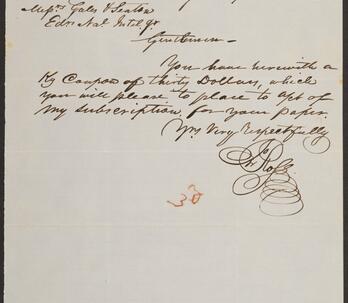 Messrs Gales & Seaton
Eds Nal. Intelgr
Gentlemen –
You have herewith a
Ky Coupon of thirty Dollars, which
you will please to place to apt of
my subscription, for your paper.
Yrs Very Respectfully
Ross